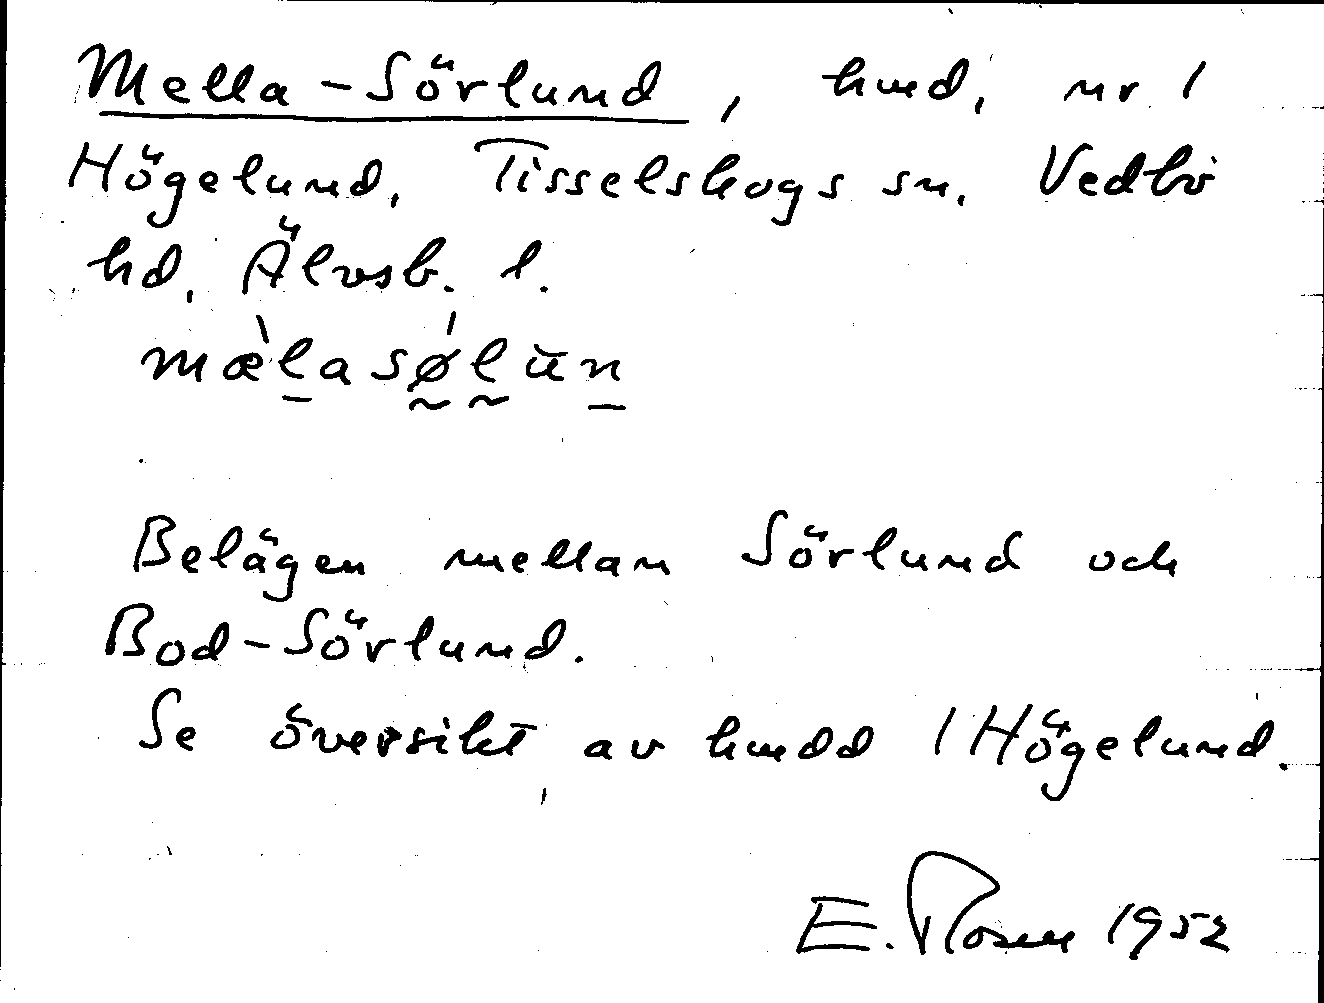 Mella-Sörlund, hmd, nr 1
Högelund, Tisselskogs sn, Vedbo
hd, Älvsb. l.
mæ̀l̠asǿ̰l̰ŭn̠
Belägen mellan Sörlund och
Bod-Sörlund.
Se översikt av hmdd 1 Högelund.
E. Rosen 1952